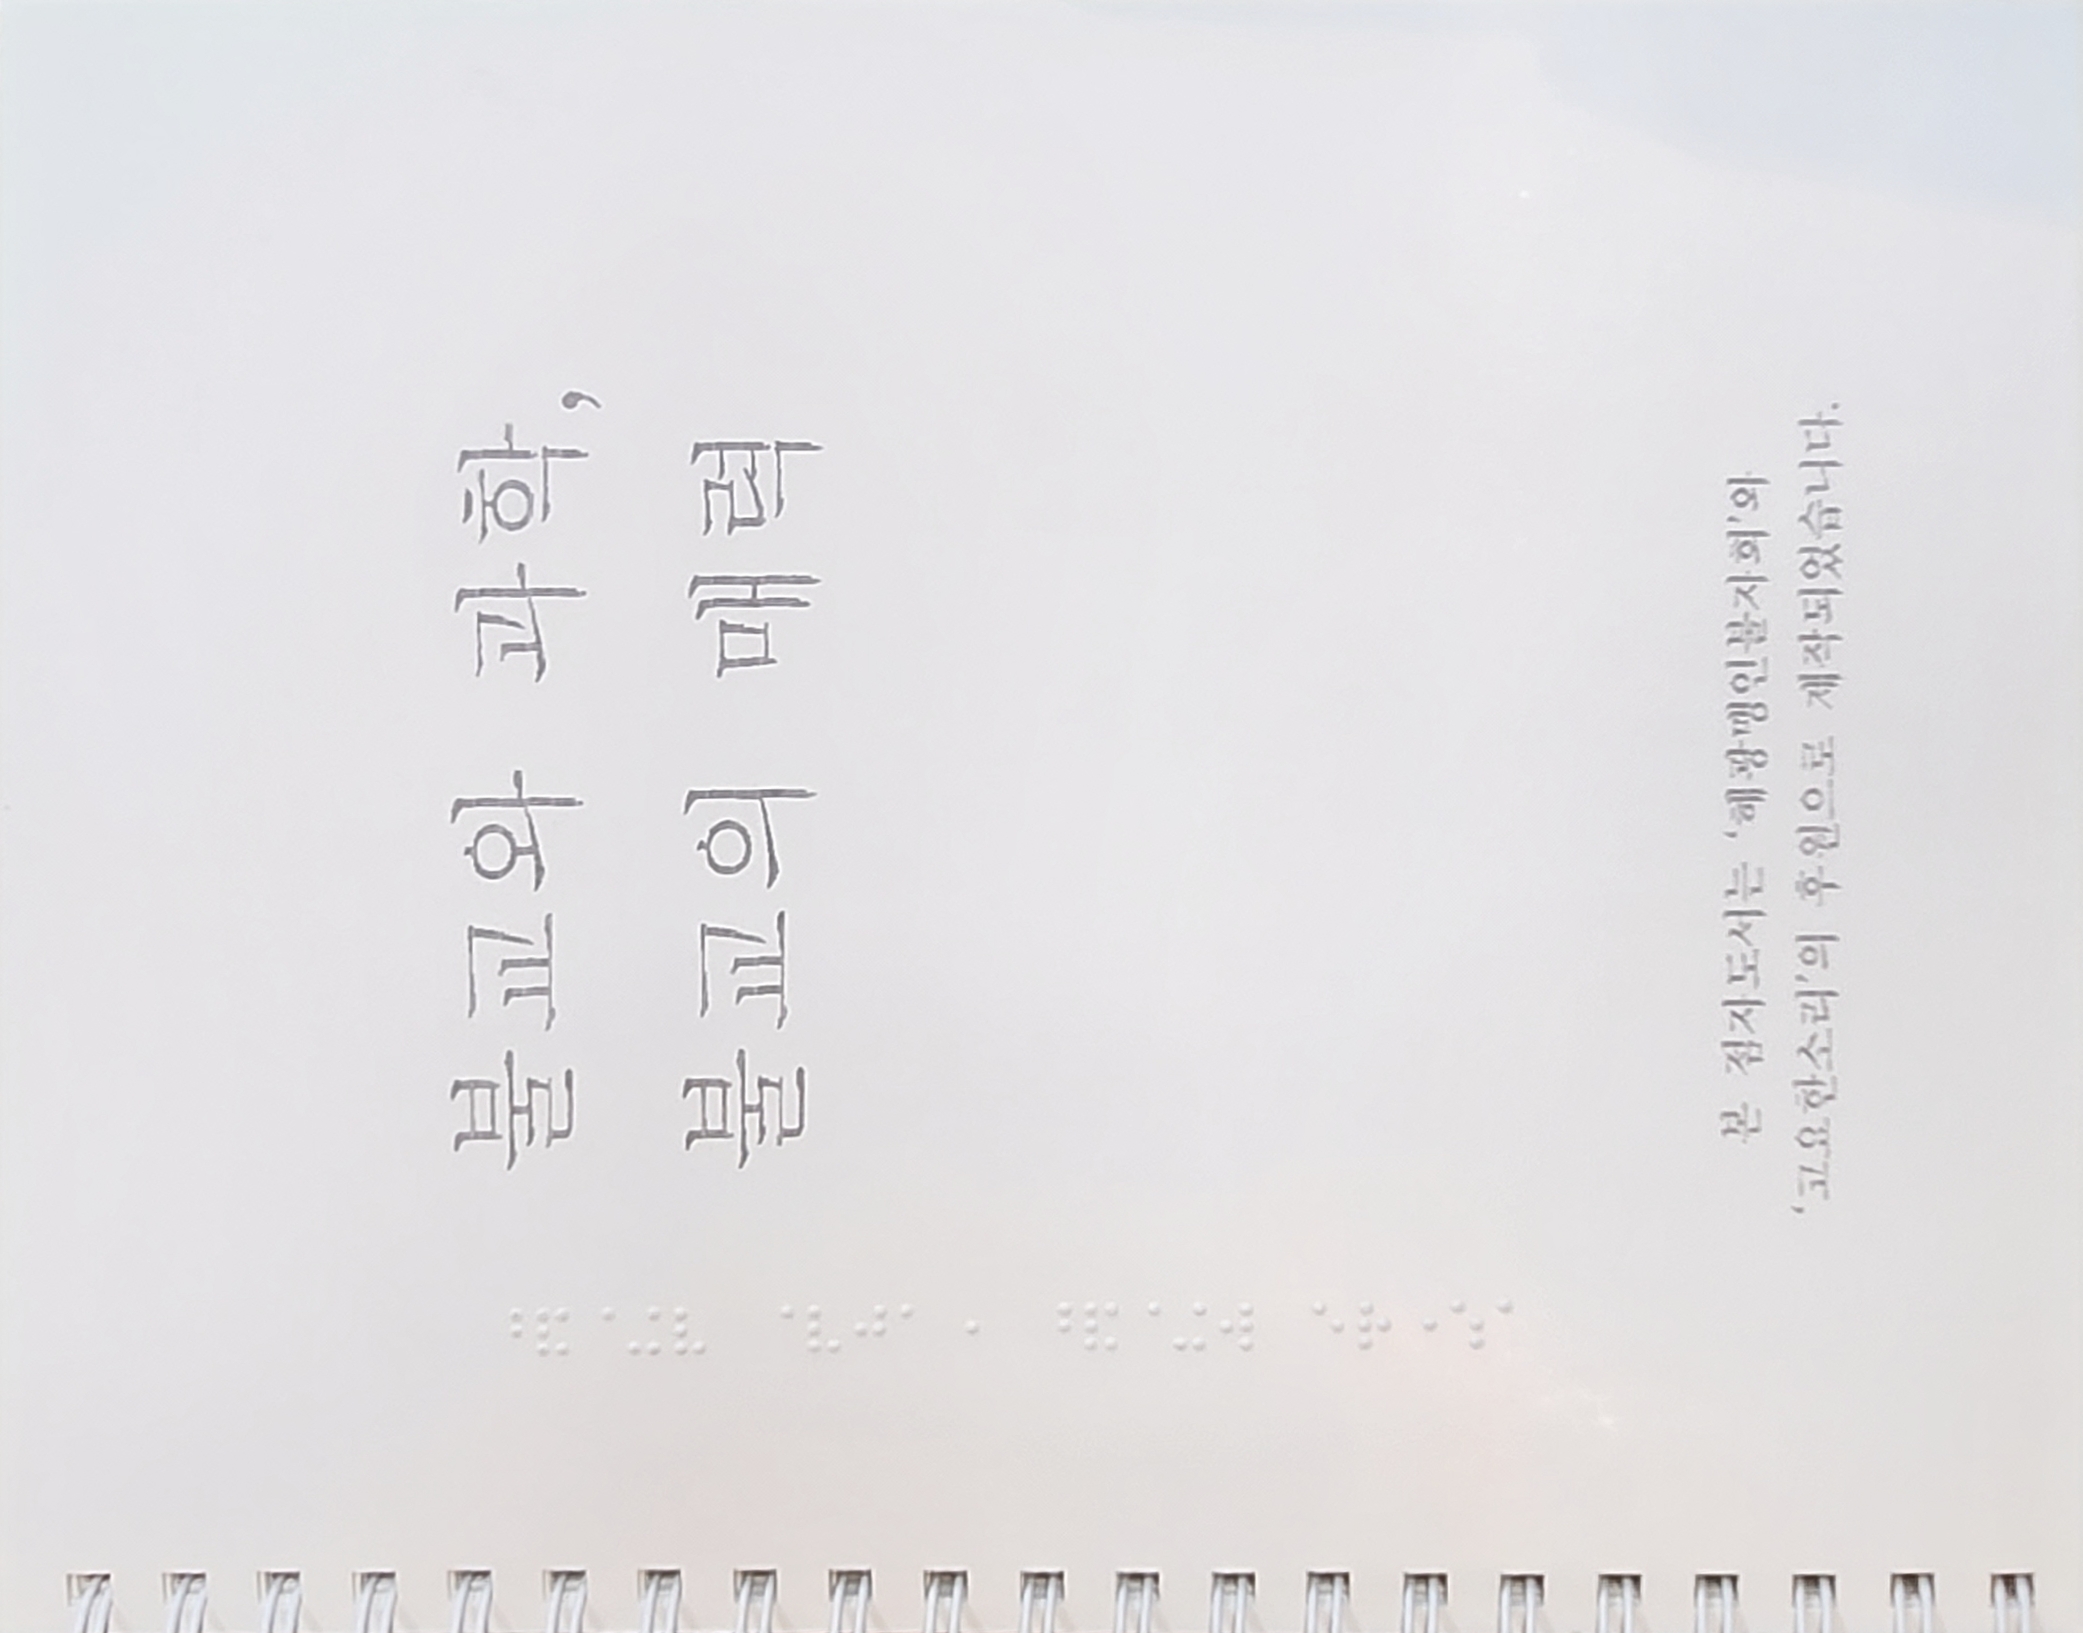 불교와 과학,
불교의 매력
⠘⠯⠈⠬⠧ ⠈⠧⠚⠁⠐ ⠘⠯⠈⠬⠺ ⠑⠗⠐⠱⠁
본 점자도서는 ‘혜광맹인불자회’와
‘고요한소리’의 후원으로 제작되었습니다.